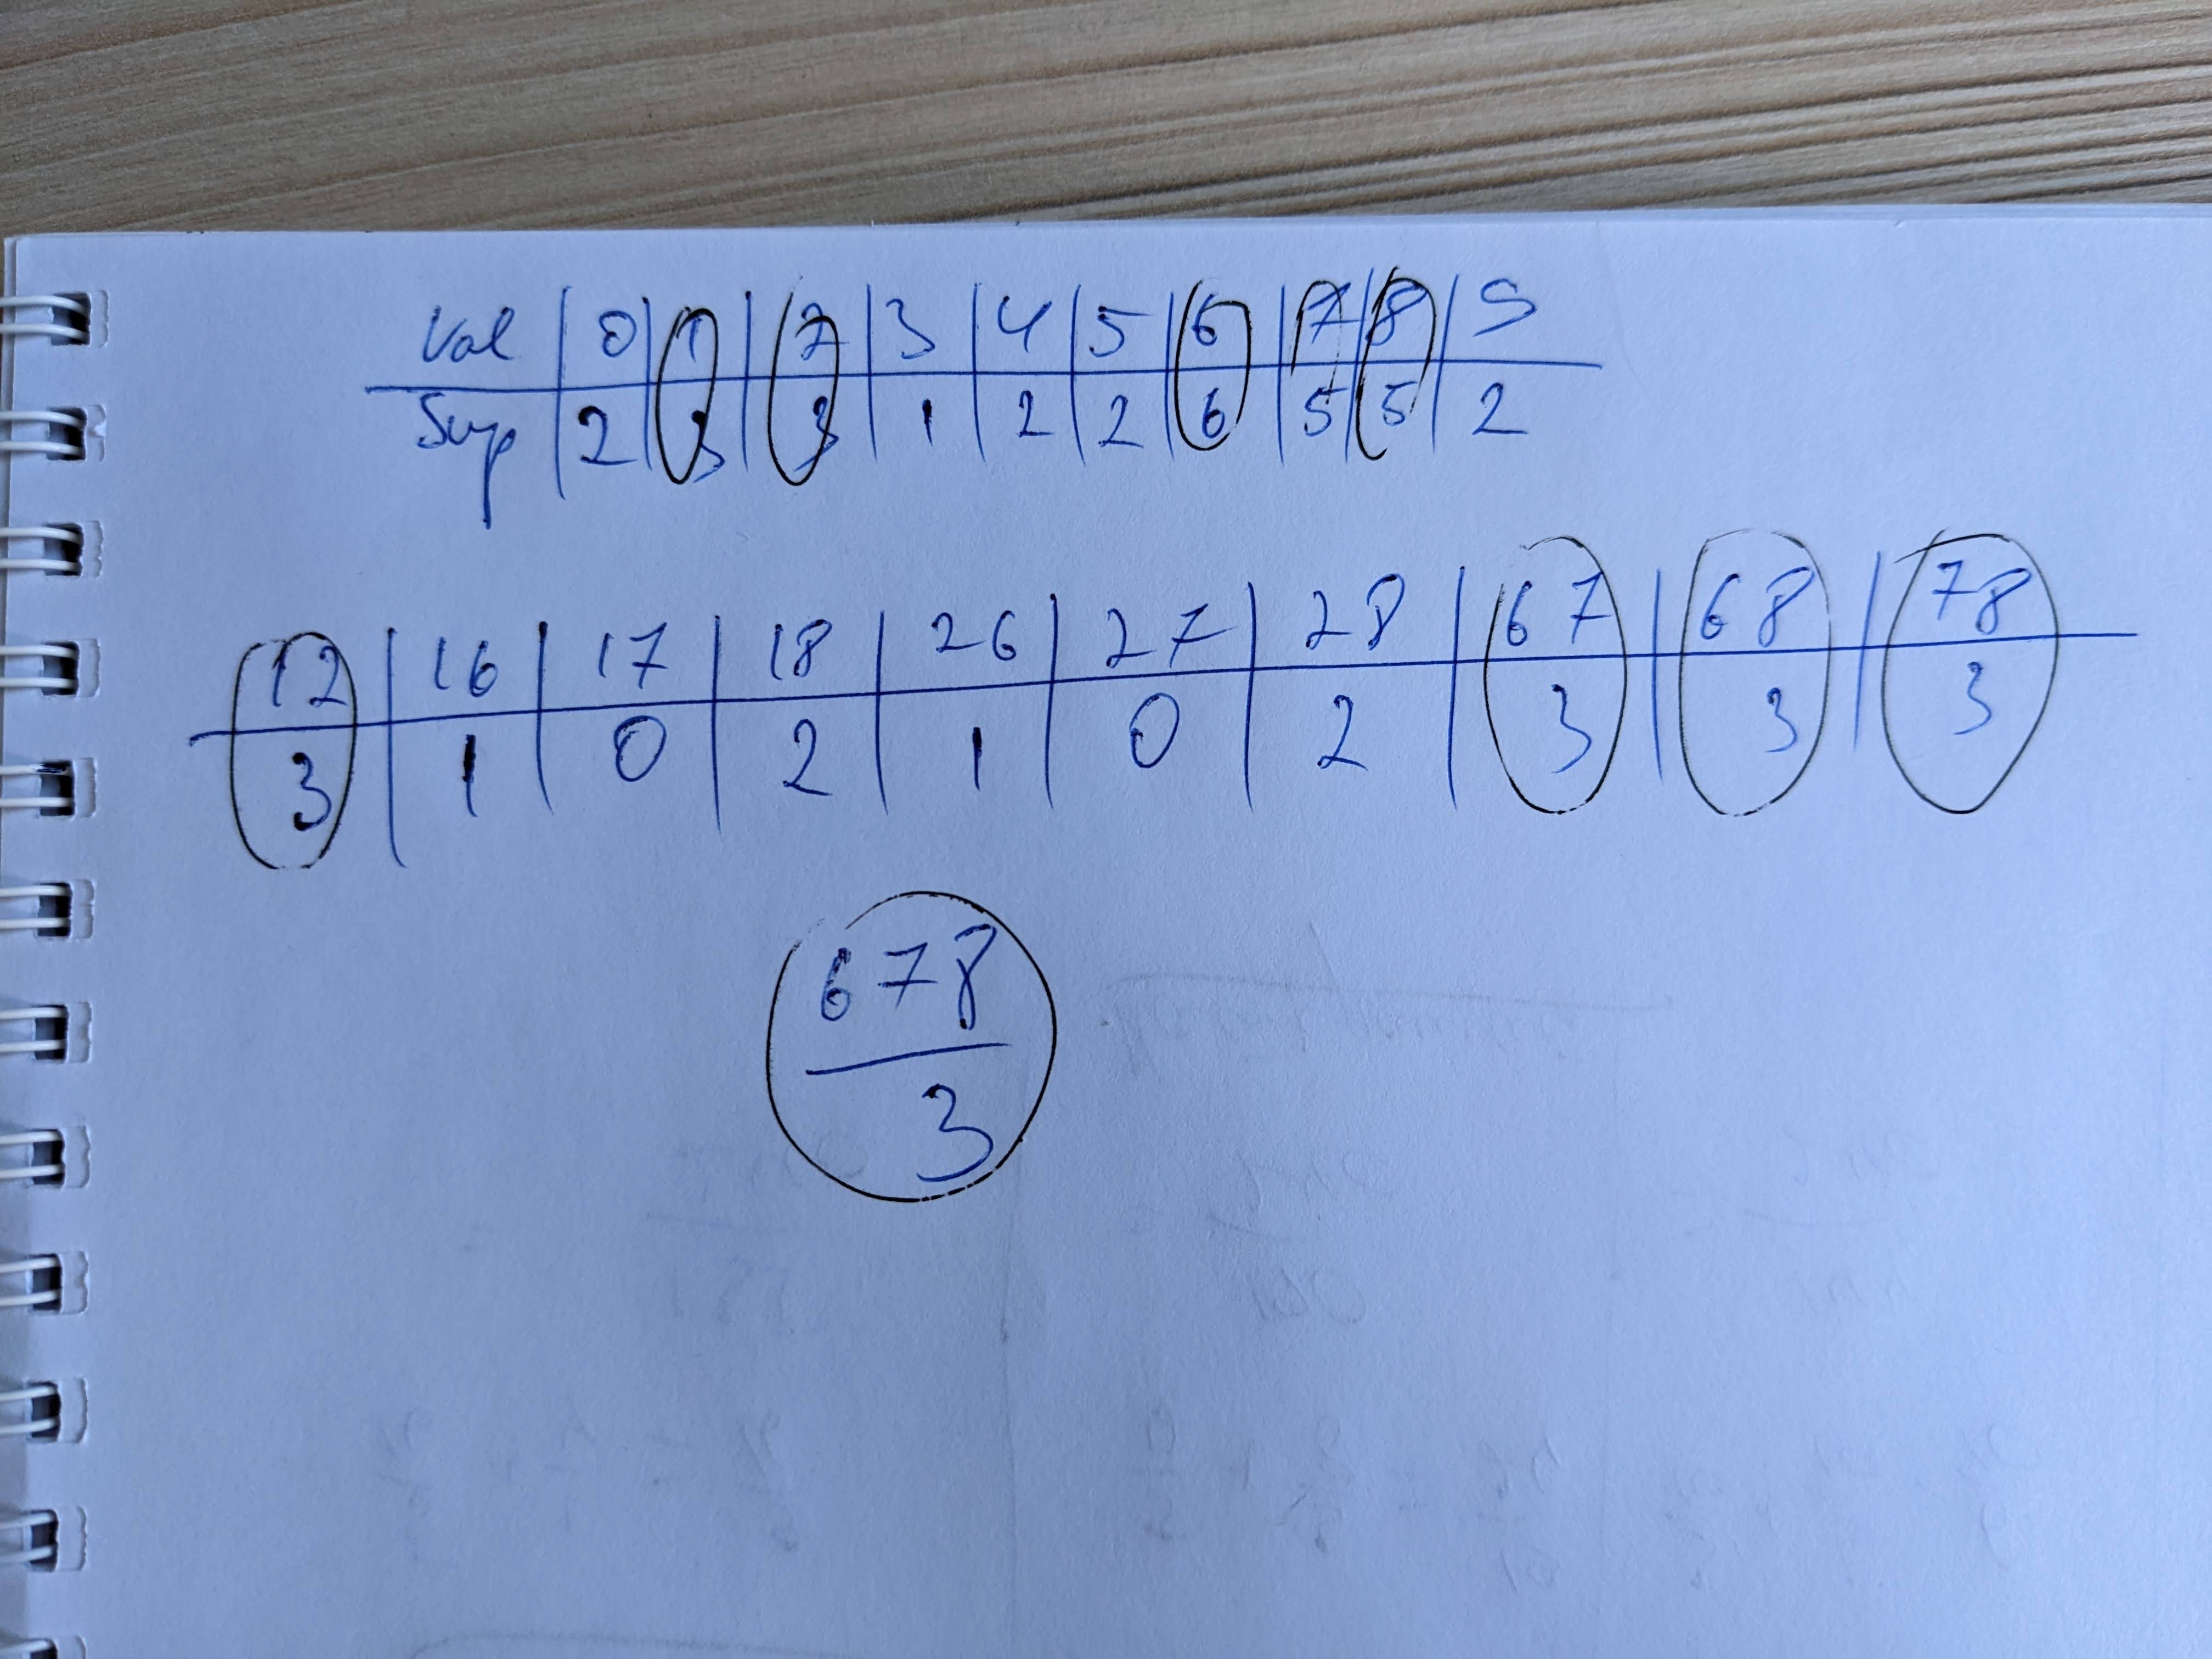 Val 0 1 2 3 4 5 6 7 8 9
Sup 2 3 3 1 2 2 6 5 5 2
12 16 17 18 26 27 28 67 68 78
3 1 0 2 1 0 2 3 3 3
678
3